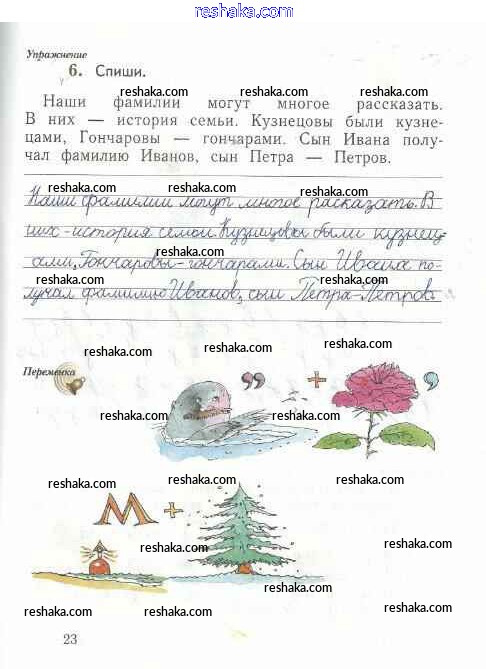 reshaka.com
Упражнение
6. Спиши.
reshaka.com reshaka.com
Наши фамилии могут многое рассказать.
В них — история семьи. Кузнецовы были кузне-
reshaka.com reshaka.com reshaka.com
цами, Гончаровы — гончарами. Сын Ивана полу-
чал фамилию Иванов, сын Петра — Петров.
reshaka.com reshaka.com
Наши фамилии могут многое расказать. В
них - история семьи. Кузнецовы были кузнец-
reshaka.com
ами, Гончаровы - гончарами. Сын Ивана по-
лучал фамилию Иванов, сын Петра - Петров.
reshaka.com reshaka.com
Переменка
reshaka.com reshaka.com
„ + ,
reshaka.com reshaka.com
reshaka.com reshaka.com
М +
reshaka.com reshaka.com
reshaka.com
reshaka.com reshaka.com reshaka.com
23